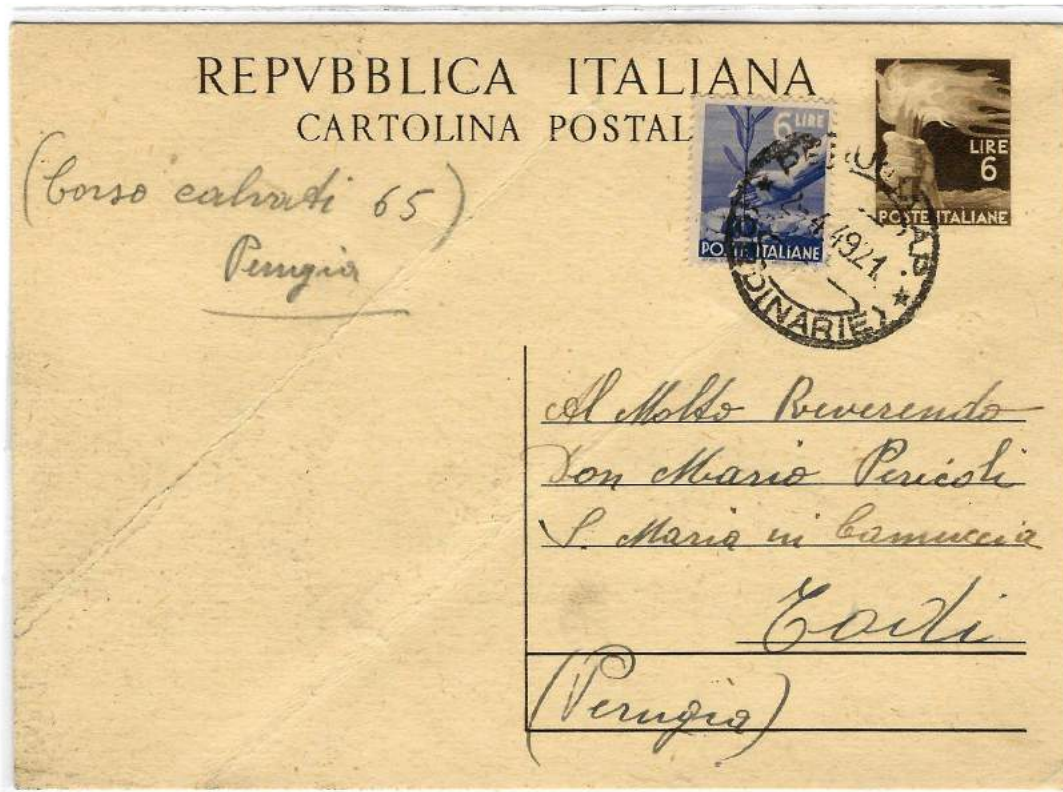 REPVBBLICA ITALIANA
CARTOLINA POSTAL
6 LIRE
POSTE ITALIANE
LIRE
6
POSTE ITALIANE
4.49.21
ORDINARIE)
(Corso calvati 65)
Perugia
Al Molto Reverendo
Don Mario Pericoli
S. Maria in Camuccia
Todi
(Perugia)